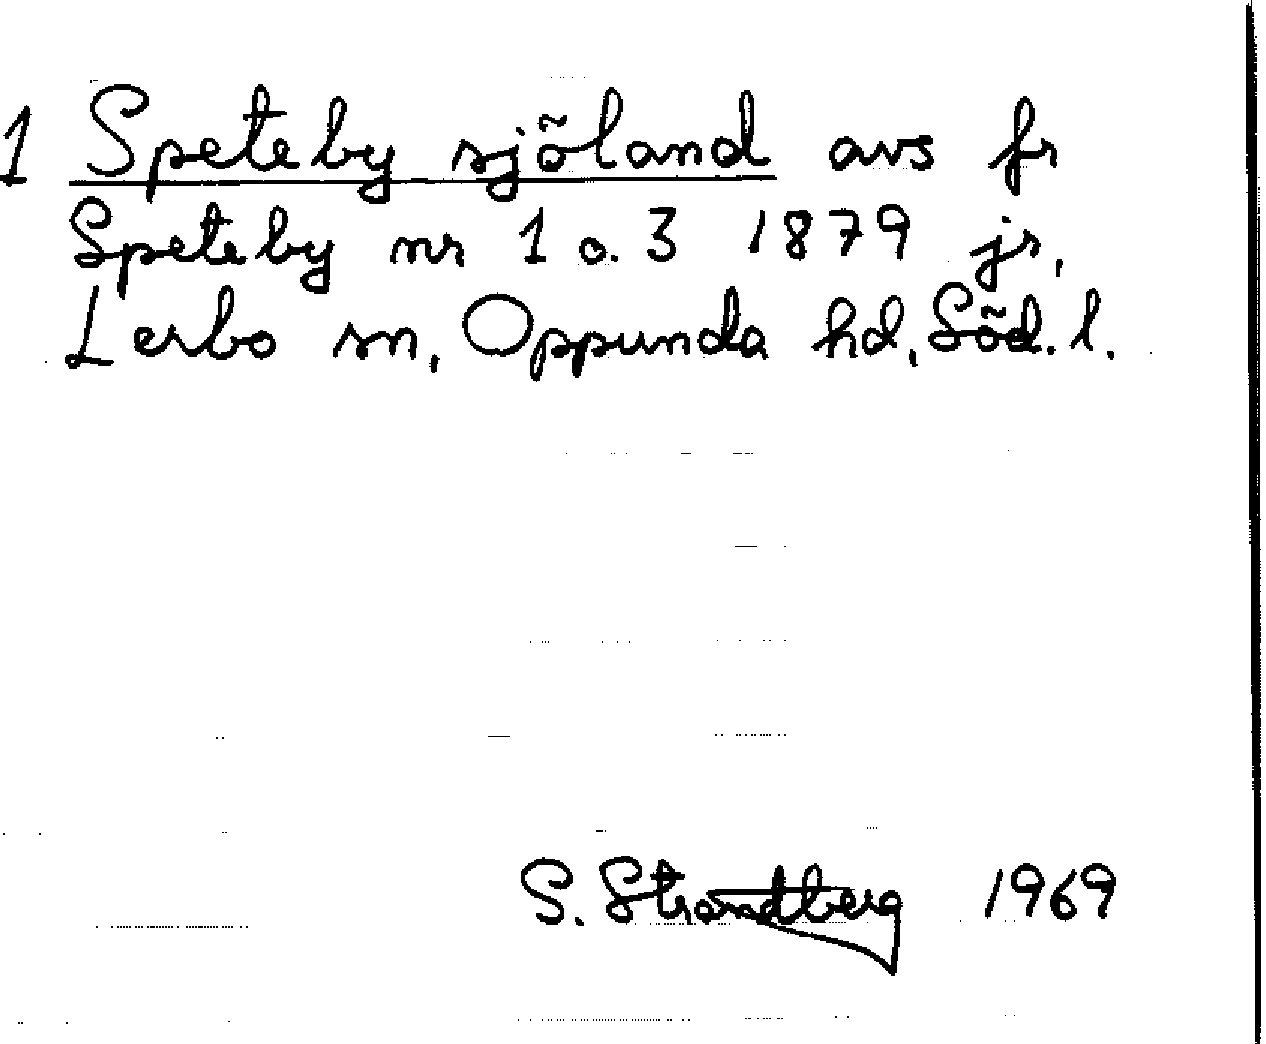 1 Speteby sjöland avs fr
Speteby nr 1 o. 3 1879 jr,
Lerbo sn, Oppunda hd, Söd. l.
S. Strandberg 1969